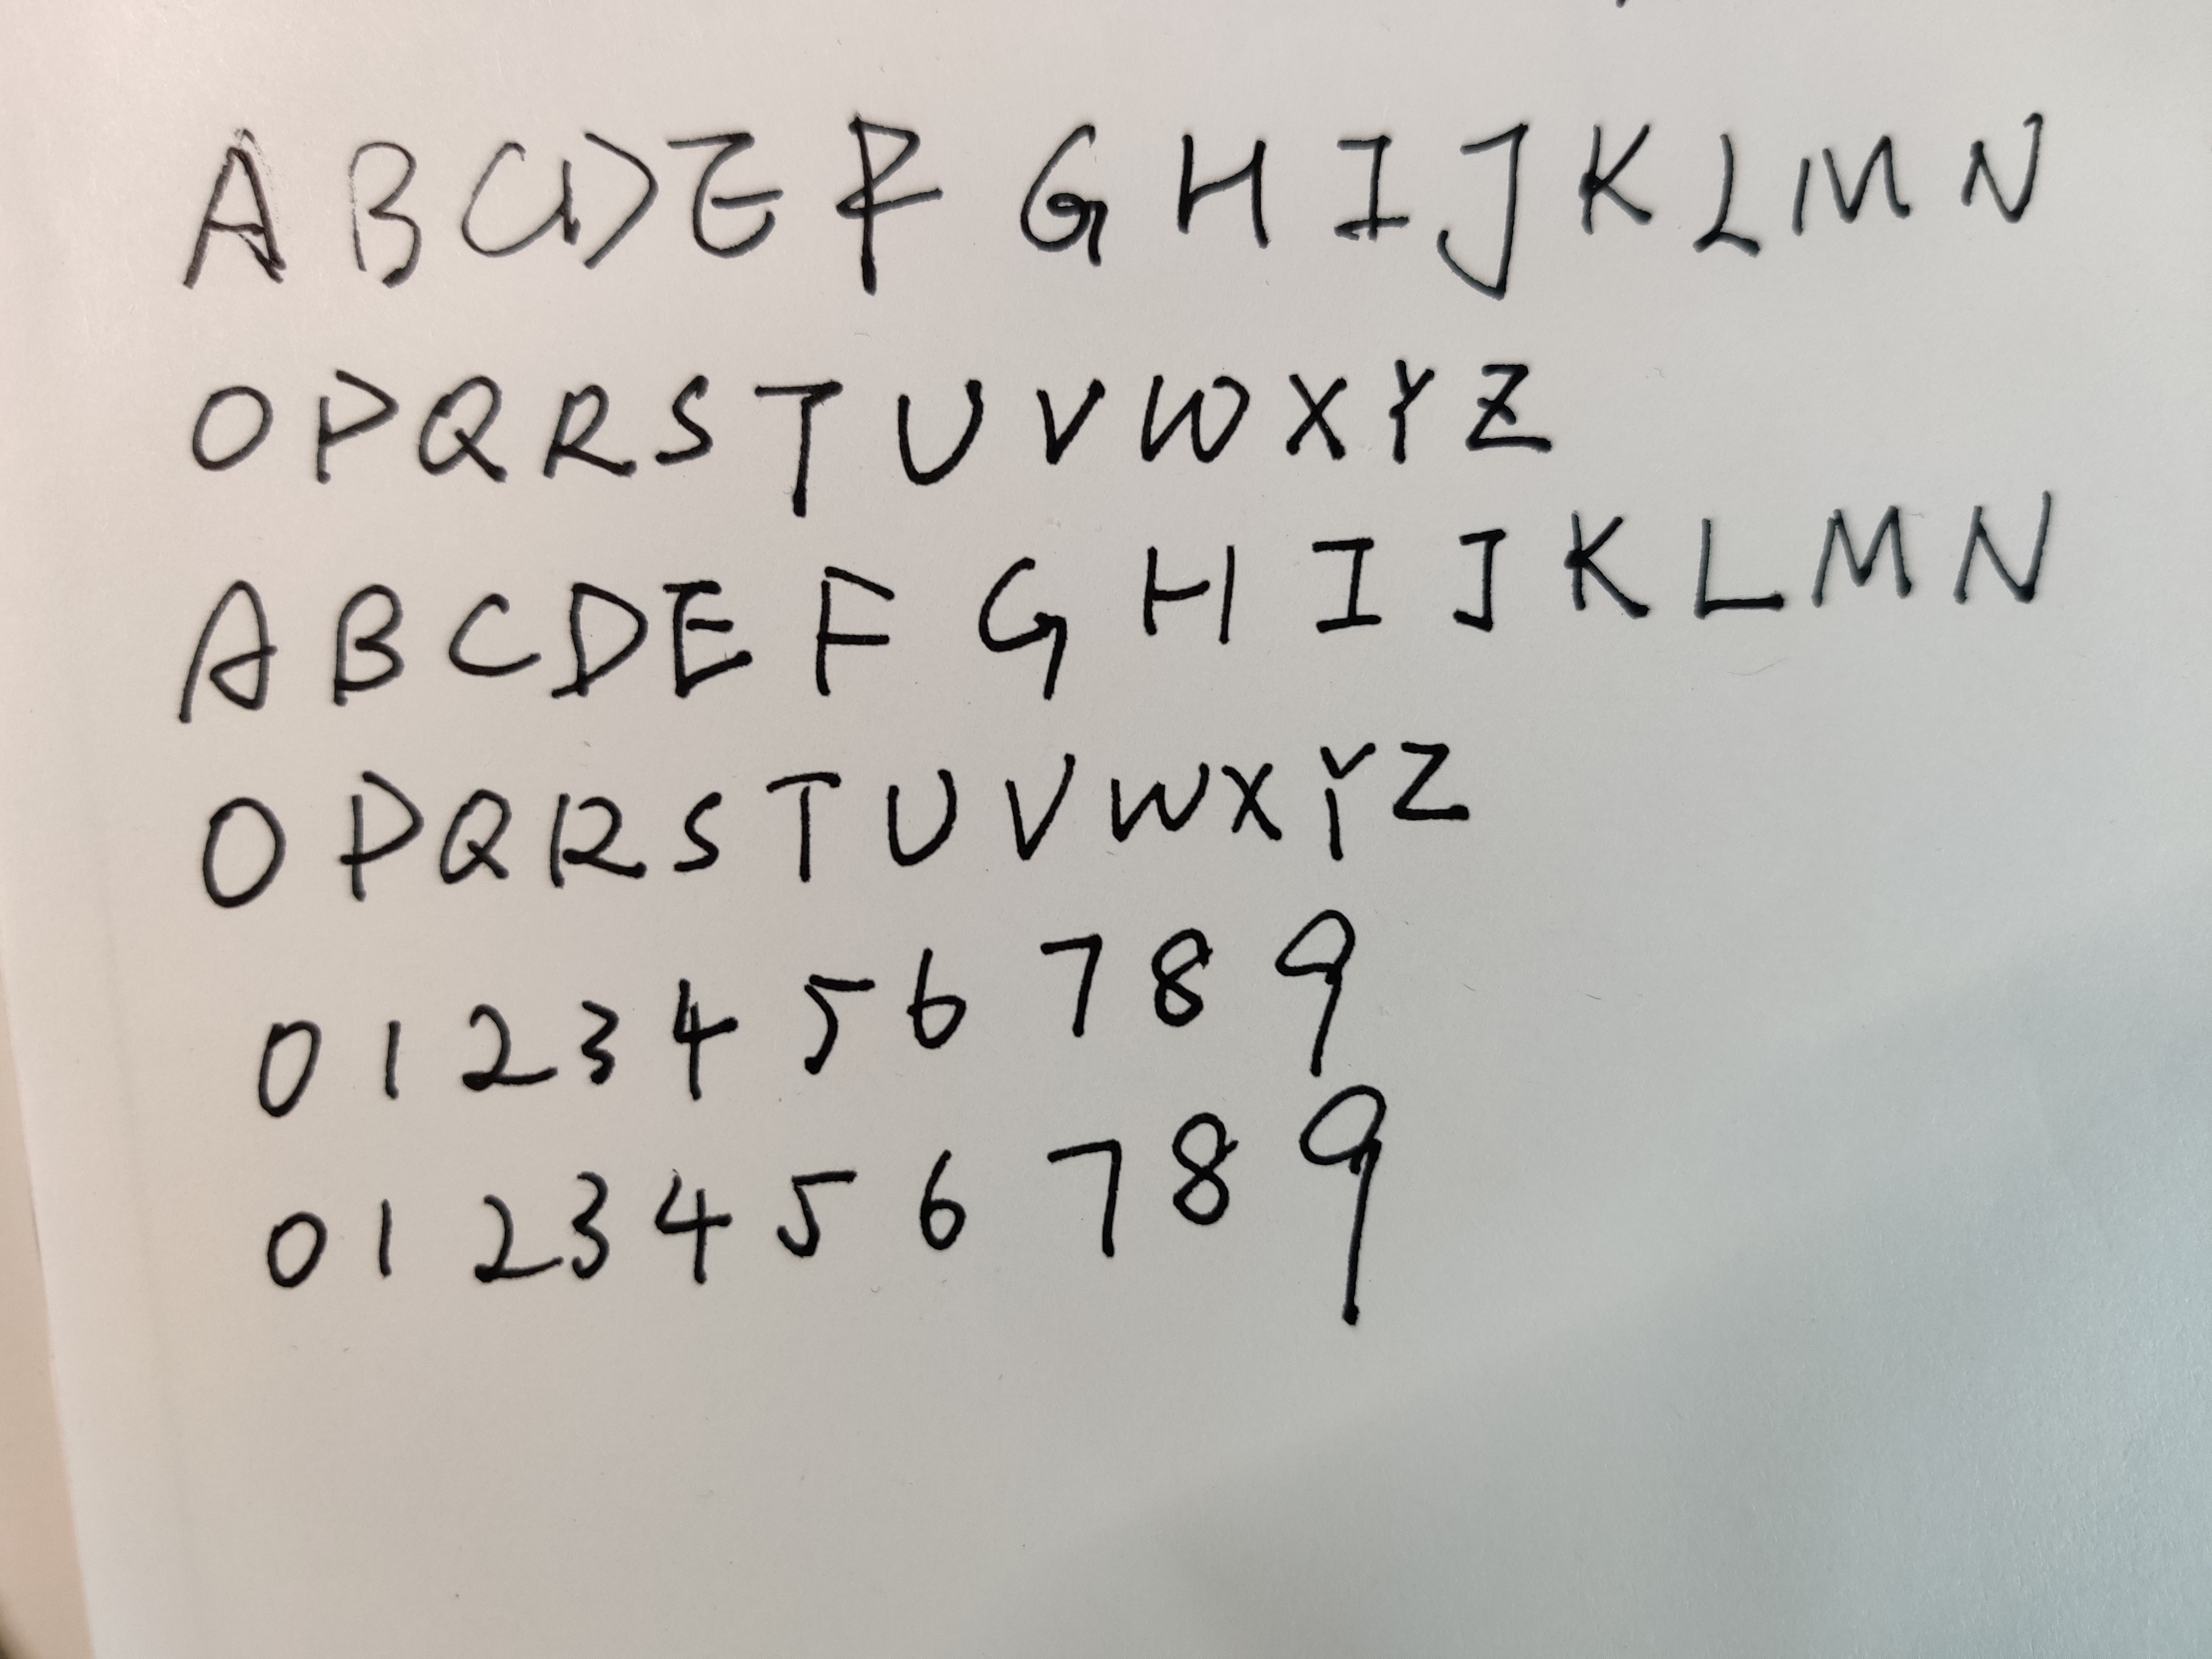 A B C D E F G H I J K L M N
O P Q R S T U V W X Y Z
A B C D E F G H I J K L M N
O P Q R S T U V W X Y Z
0 1 2 3 4 5 6 7 8 9
0 1 2 3 4 5 6 7 8 9